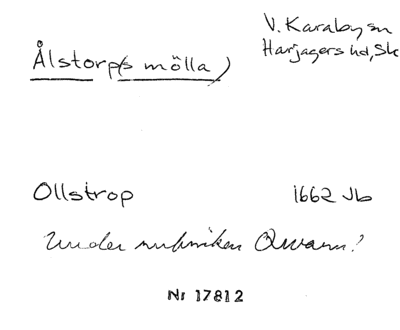 V. Karaby sn
Harjagers hd, Sk
Ålstorp(s mölla)
Ollstrop 1662 Jb
Under rubriken Qvarn!
Nr 17812